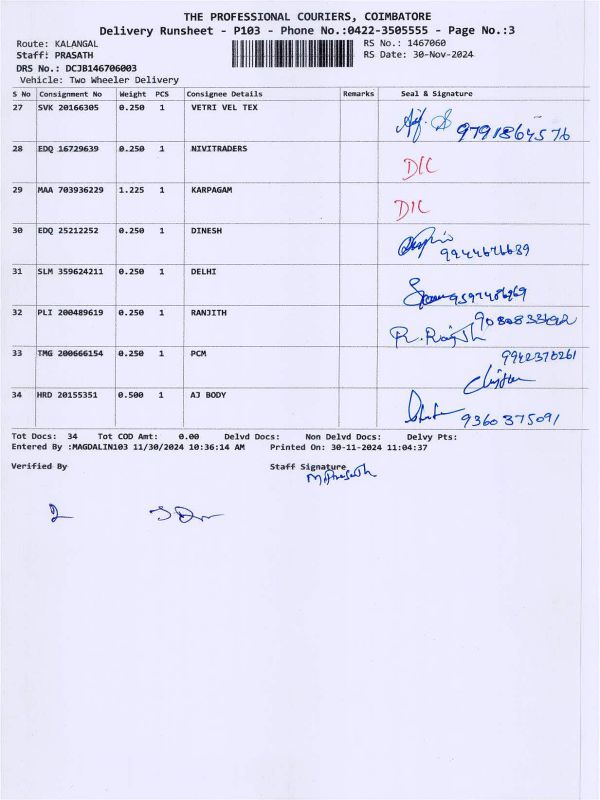 THE PROFESSIONAL COURIERS, COIMBATORE
Delivery Runsheet - P103 - Phone No.:0422-3505555 - Page No.:3
Route: KALANGAL
RS No.: 1467060
Staff: PRASATH
RS Date: 30-Nov-2024
DRS No.: DCJB146706003
Vehicle: Two Wheeler Delivery
S No Consignment No Weight PCS Consignee Details Remarks Seal & Signature
27 SVK 20166305 0.250 1 VETRI VEL TEX 9791864576
28 EDQ 16729639 0.250 1 NIVITRADERS D/C
29 MAA 703936229 1.225 1 KARPAGAM D/C
30 EDQ 25212252 0.250 1 DINESH 9944676639
31 SLM 359624211 0.250 1 DELHI
32 PLI 200489619 0.250 1 RANJITH
33 TMG 200666154 0.250 1 PCM 9942376261
34 HRD 20155351 0.500 1 AJ BODY 9360375091
Tot Docs: 34 Tot COD Amt: 0.00 Delvd Docs: Non Delvd Docs: Delvy Pts:
Entered By :MAGDALIN103 11/30/2024 10:36:14 AM Printed On: 30-11-2024 11:04:37
Verified By Staff Signature
M.Prasath